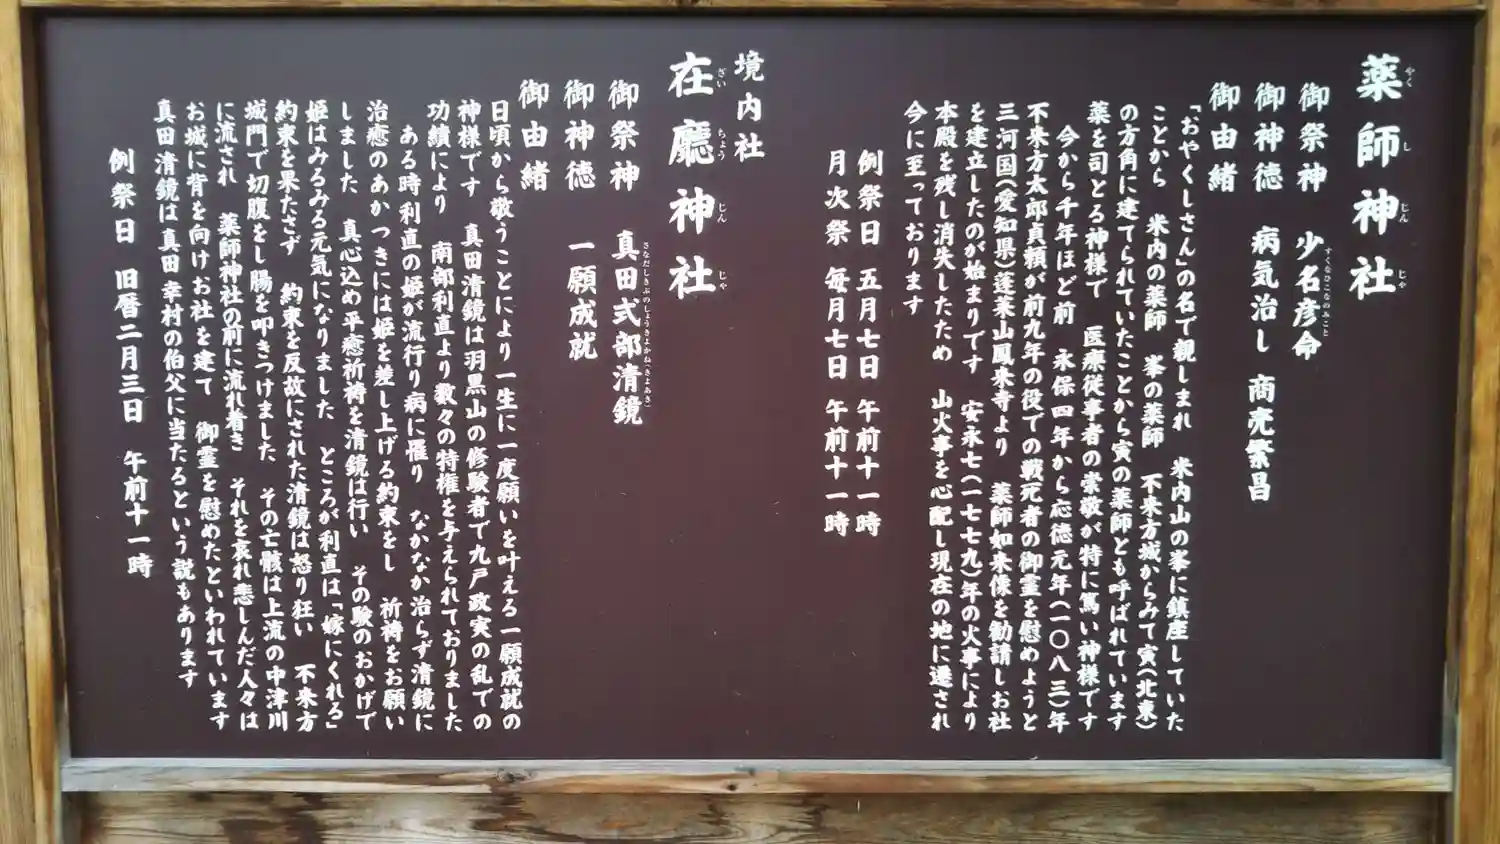 薬師神社
やくしじんじゃ
御祭神 少名彦命
すくなひこなのみこと
御神徳 病気治し 商売繁昌
御由緒
「おやくしさん」の名で親しまれ 米内山の峯に鎮座していた
ことから 米内の薬師 峯の薬師 不来方城からみて寅(北東)
の方角に建てられていたことから寅の薬師とも呼ばれています
薬を司とる神様で 医療従事者の崇敬が特に篤い神様です
今から千年ほど前 永保四年から応徳元年(一〇八三)年
不来方太郎貞頼が前九年の役での戦死者の御霊を慰めようと
三河国(愛知県)蓬莱山鳳来寺より 薬師如来像を勧請しお社
を建立したのが始まりです 安永七(一七七九)年の火事により
本殿を残し消失したため 山火事を心配し現在の地に遷され
今に至っております
例祭日 五月七日 午前十一時
月次祭 毎月七日 午前十一時
境内社
在廳神社
ざいちょうじんじゃ
御祭神 真田式部清鏡
さなだしきぶのしょうきよかね(きよあき)
御神徳 一願成就
御由緒
日頃から敬うことにより一生に一度願いを叶える一願成就の
神様です 真田清鏡は羽黒山の修験者で九戸政実の乱での
功績により 南部利直より数々の特権を与えられておりました
ある時利直の姫が流行り病に罹り なかなか治らず清鏡に
治癒のあかつきには姫を差し上げる約束をし 祈祷をお願い
しました 真心込め平癒祈祷を清鏡は行い その験のおかげで
姫はみるみる元気になりました ところが利直は「嫁にくれる」
約束を果たさず 約束を反故にされた清鏡は怒り狂い 不来方
城門で切腹をし腸を叩きつけました その亡骸は上流の中津川
に流され 薬師神社の前に流れ着き それを哀れ悲しんだ人々は
お城に背を向けお社を建て 御霊を慰めたといわれています
真田清鏡は真田幸村の伯父に当たるという説もあります
例祭日 旧暦二月三日 午前十一時